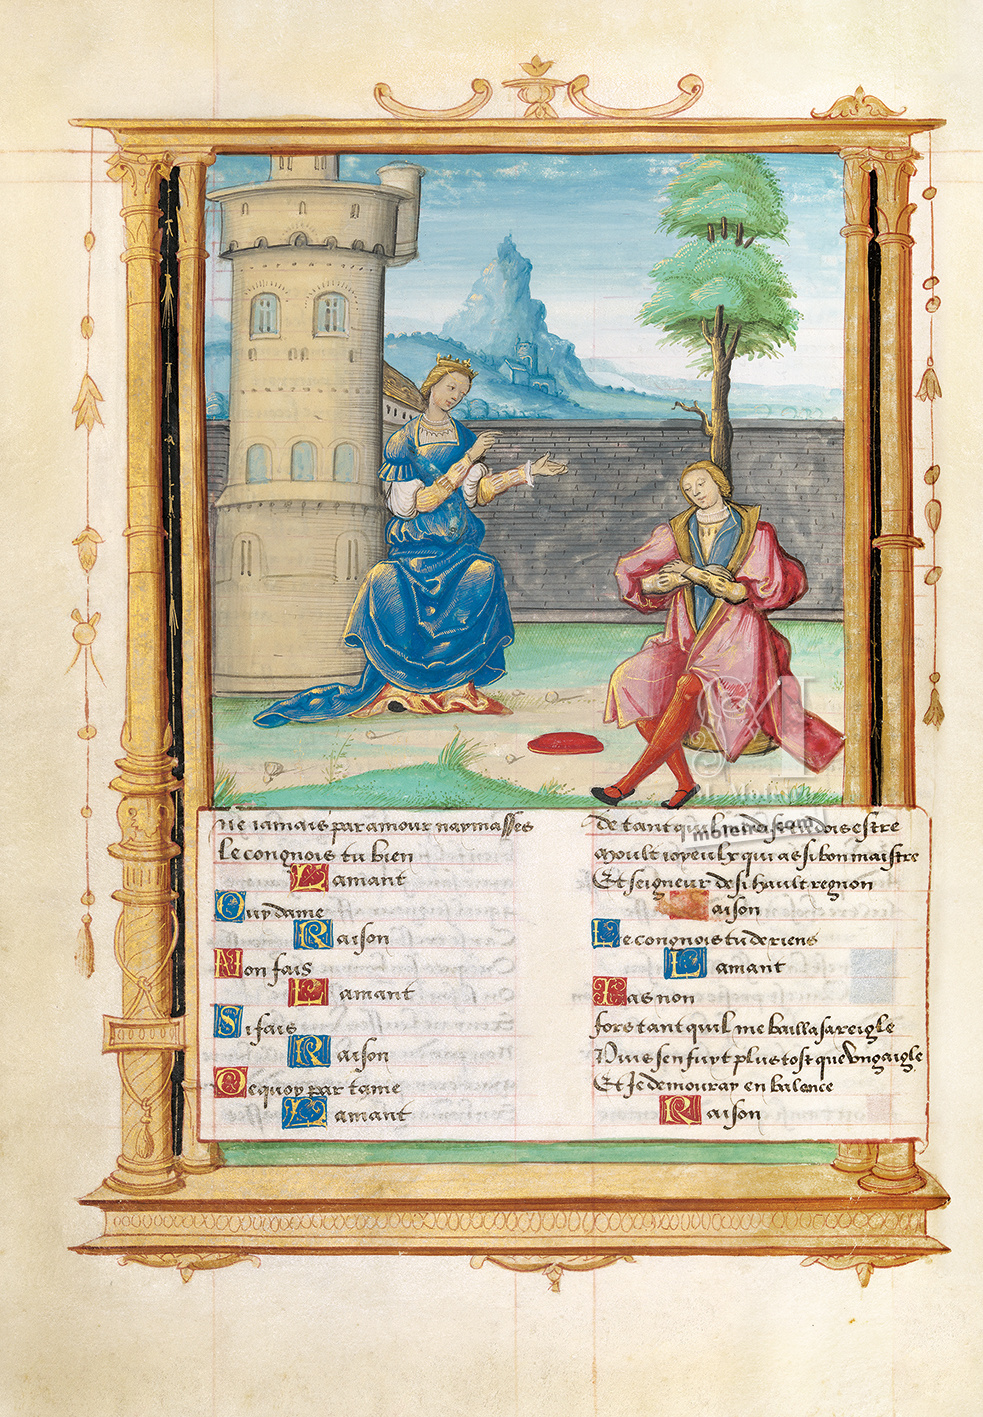 Ne iamais par amour naymasses
Le congnois tu bien
Lamant
Ouy dame
Raison
Non fais
Lamant
Si fais
Raison
De quoy par tame
Lamant
De tant quil dois estre
Moult ioyeulx qui as si bon maistre
Et seigneur de si hault regnon
Raison
Le congnois tu de riens
Lamant
Las non
fors tant quil me bailla sa reigle
Puis sen fuyt plus tost que ung aigle
Et Je demouray en balence
Raison
moleiro.com